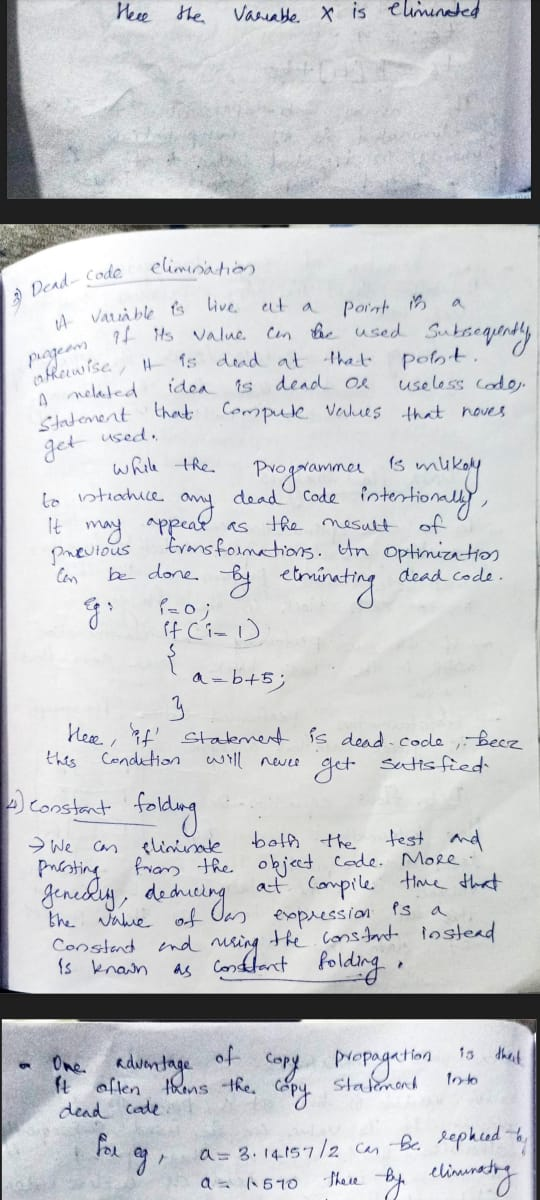 Here the Variable x is eliminated
3) Dead-Code elimination
A Variable is live at a point in a
program if its value can be used Subsequently
otherwise, it is dead at that point.
A related idea is dead or useless code,
Statement that Compute Values that never
get used.
While the Programmer is unlikely
to introduce any dead code intentionally,
It may appear as the result of
previous transformations. An optimization
Can be done by eliminating dead code.
Eg: i=0;
if (i=1)
{
a=b+5;
}
Here, 'if' Statement is dead-code, Becz
this Condition will never get Satisfied.
4) Constant folding
→ We can eliminate both the test and
printing from the object Code. More
generally, deducing at Compile time that
the value of an expression is a
Constant and using the constant instead
is known as Constant folding.
- One advantage of copy propagation is that
it often turns the copy Statement into
dead code.
For eg, a= 3.14157/2 can be replaced by
a= 1.570 there by eliminating